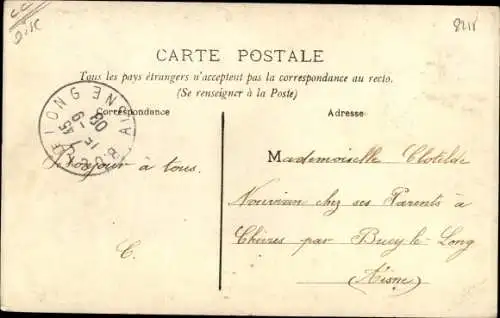 CARTE POSTALE
Tous les pays étrangers n'acceptent pas la correspondance au recto.
(Se renseigner à la Poste)
Correspondance
Adresse
Bonjour à tous.
C.
Mademoiselle Clotilde
chez ses Parents à
par Bucy-le-Long
(Aisne)
8218